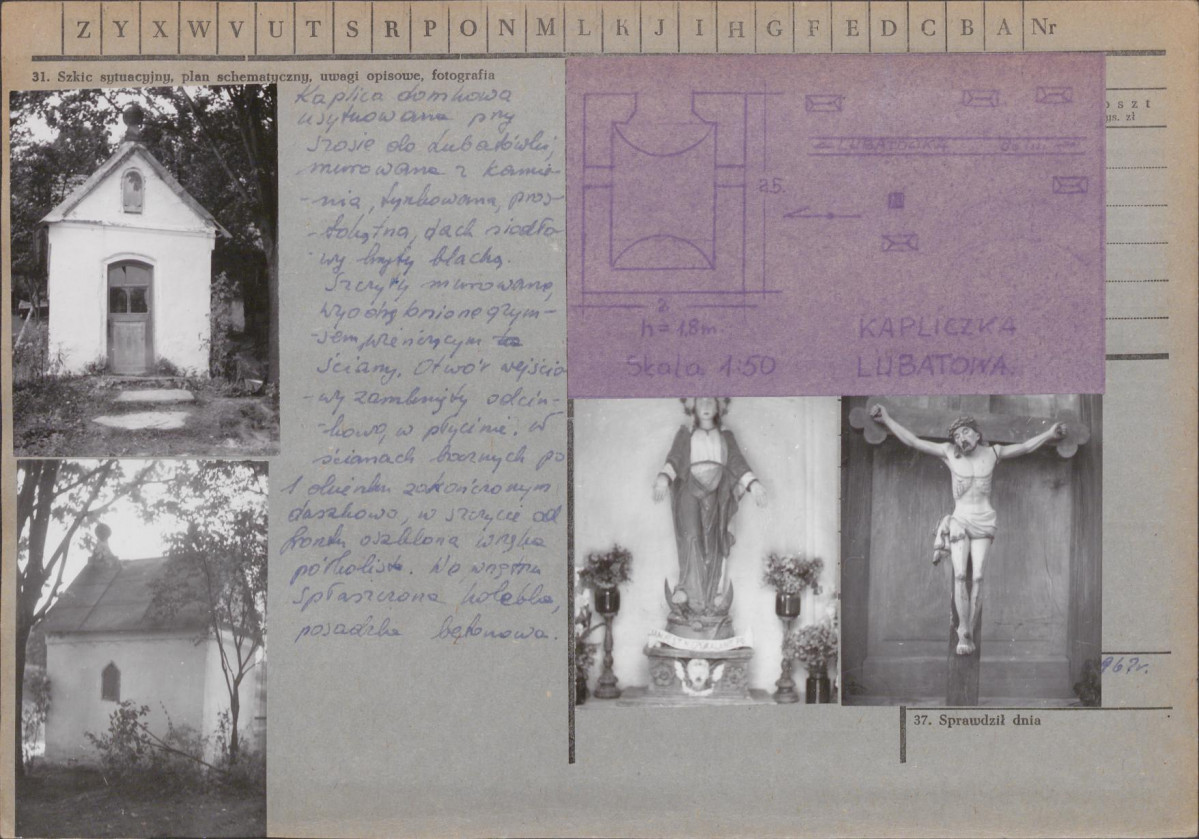 Z Y X W V U T S R P O N M L K J I H G F E D C B A Nr
31. Szkic sytuacyjny, plan schematyczny, uwagi opisowe, fotografia
Kaplica domkowa
usytuowana przy
szosie do Lubatówki,
murowana z kamie-
-nia, tynkowana, pros-
-tokątna, dach siodło-
wy kryty blachą.
Szczyty murowane,
wyodrębnione gzym-
-sem wieńczącym
ściany. Otwór wejścio
-wy zamknięty odcin-
-kowo, w płycinie. W
ścianach bocznych po
1 okienku zakończonym
daszkowo, w szczycie od
frontu oszklona wnęka
półkolista. We wnętrzu
spłaszczona kolebka,
posadzka betonowa.
25.
2
h = 1.8m.
Skala 1:50
LUBATÓWKA
KAPLICZKA
LUBATOWA.
oszt
ys. zł
967r.
37. Sprawdził dnia